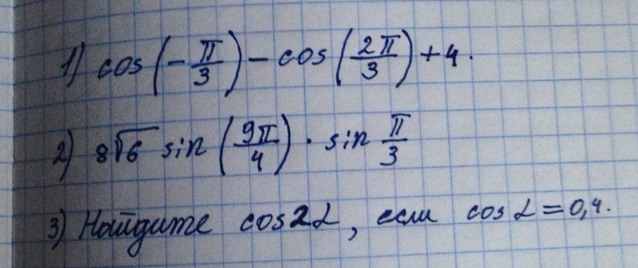 1) cos(-π/3) - cos(2π/3) + 4.
2) 8√6 sin(9π/4) · sin π/3
3) Найдите cos2α, если cos α = 0,4.